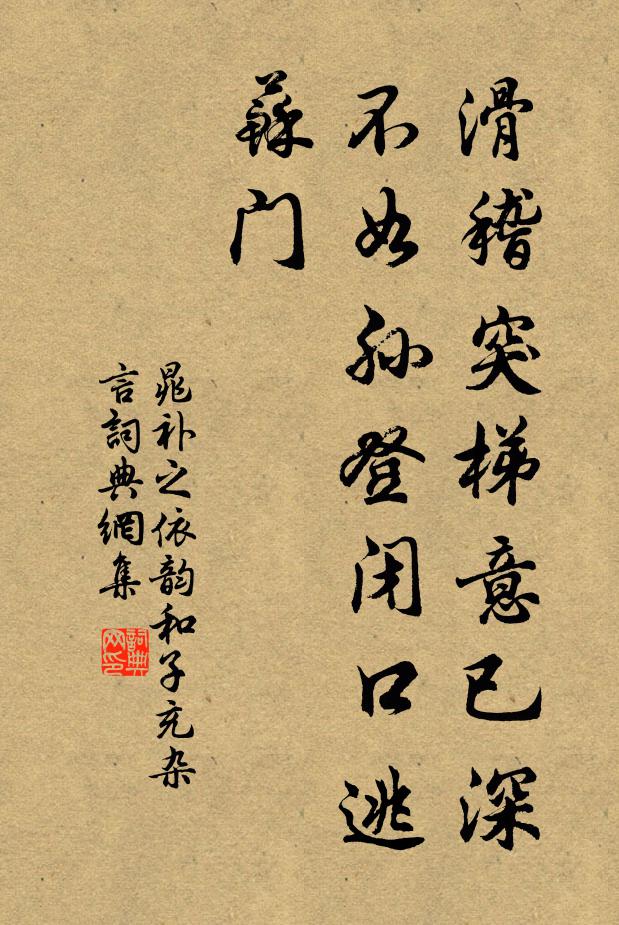 滑稽突梯意已深
不如孙登闭口逃
蘇门
晁补之依韵和子充杂
言詞典網集
詞典
网印